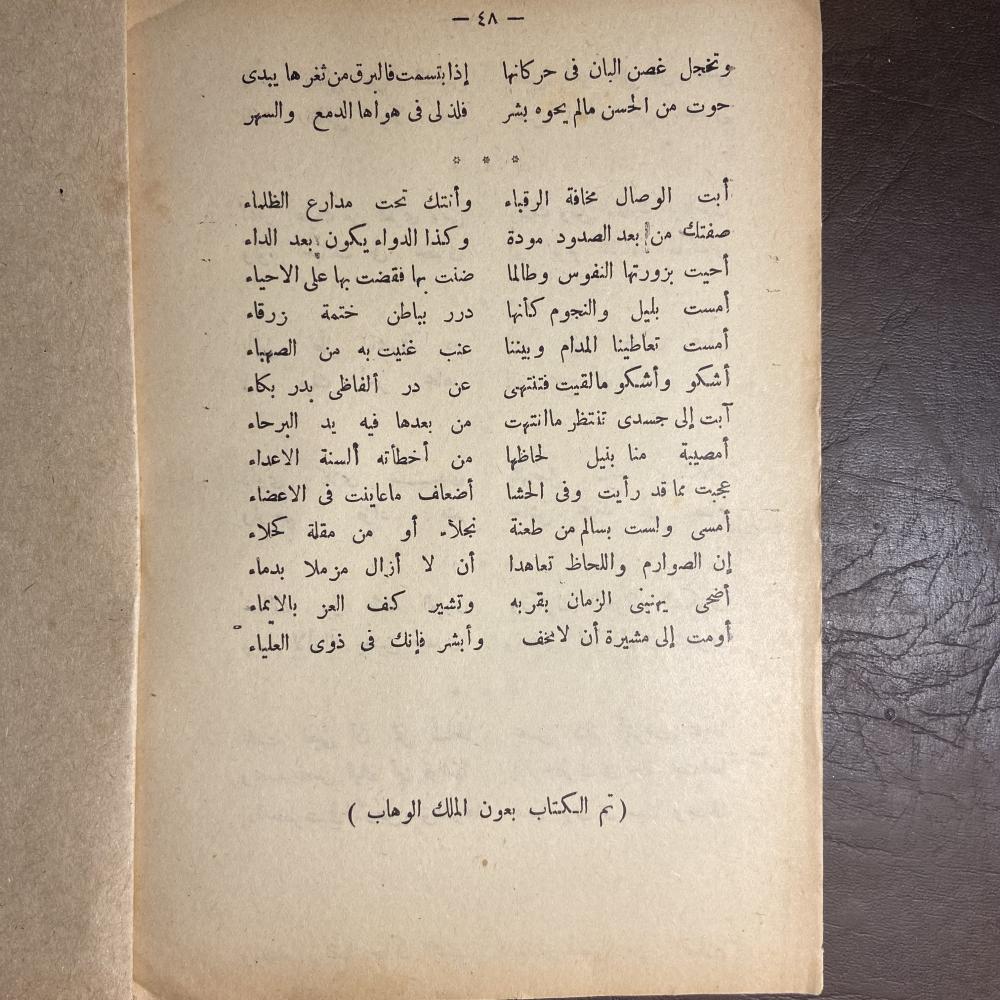 — ٤٨ —
وتخجل غصن البان فى حركاتها إذا بتسمت فالبرق من ثغرها يبدى
حوت من الحسن مالم يحوه بشر فلذ لى فى هواها الدمع والسهر
* * *
أبت الوصال مخافة الرقباء وأتتك تحت مدارع الظلماء
صفتك من بعد الصدود مودة وكذا الدواء يكون بعد الداء
أحيت بزورتها النفوس وطالما ضنت بها فقضت بها على الاحياء
أمست بليل والنجوم كأنها درر بباطن ختمة زرقاء
أمست تعاطينا المدام وبيننا عنب غنيت به من الصهباء
أشكو وأشكو مالقيت فتنتهى عن در ألفاظى بدر بكاء
آبت إلى جسدى تنتظر ماانتهت من بعدها فيه يد البرحاء
أمصيبة منا بنيل لحاظها من أخطأته ألسنة الاعداء
عجبت مما قد رأيت وفى الحشا أضعاف ماعاينت فى الاعضاء
أمسى ولست بسالم من طعنة نجلاء أو من مقلة كحلاء
إن الصوارم واللحاظ تعاهدا أن لا أزال مزملا بدماء
أضحى يهنينى الزمان بقربه وتشير كف العز بالايماء
أومت إلى مشيرة أن لاتخف وأبشر فإنك فى ذوى العلياء
( تم الكتاب بعون الملك الوهاب )